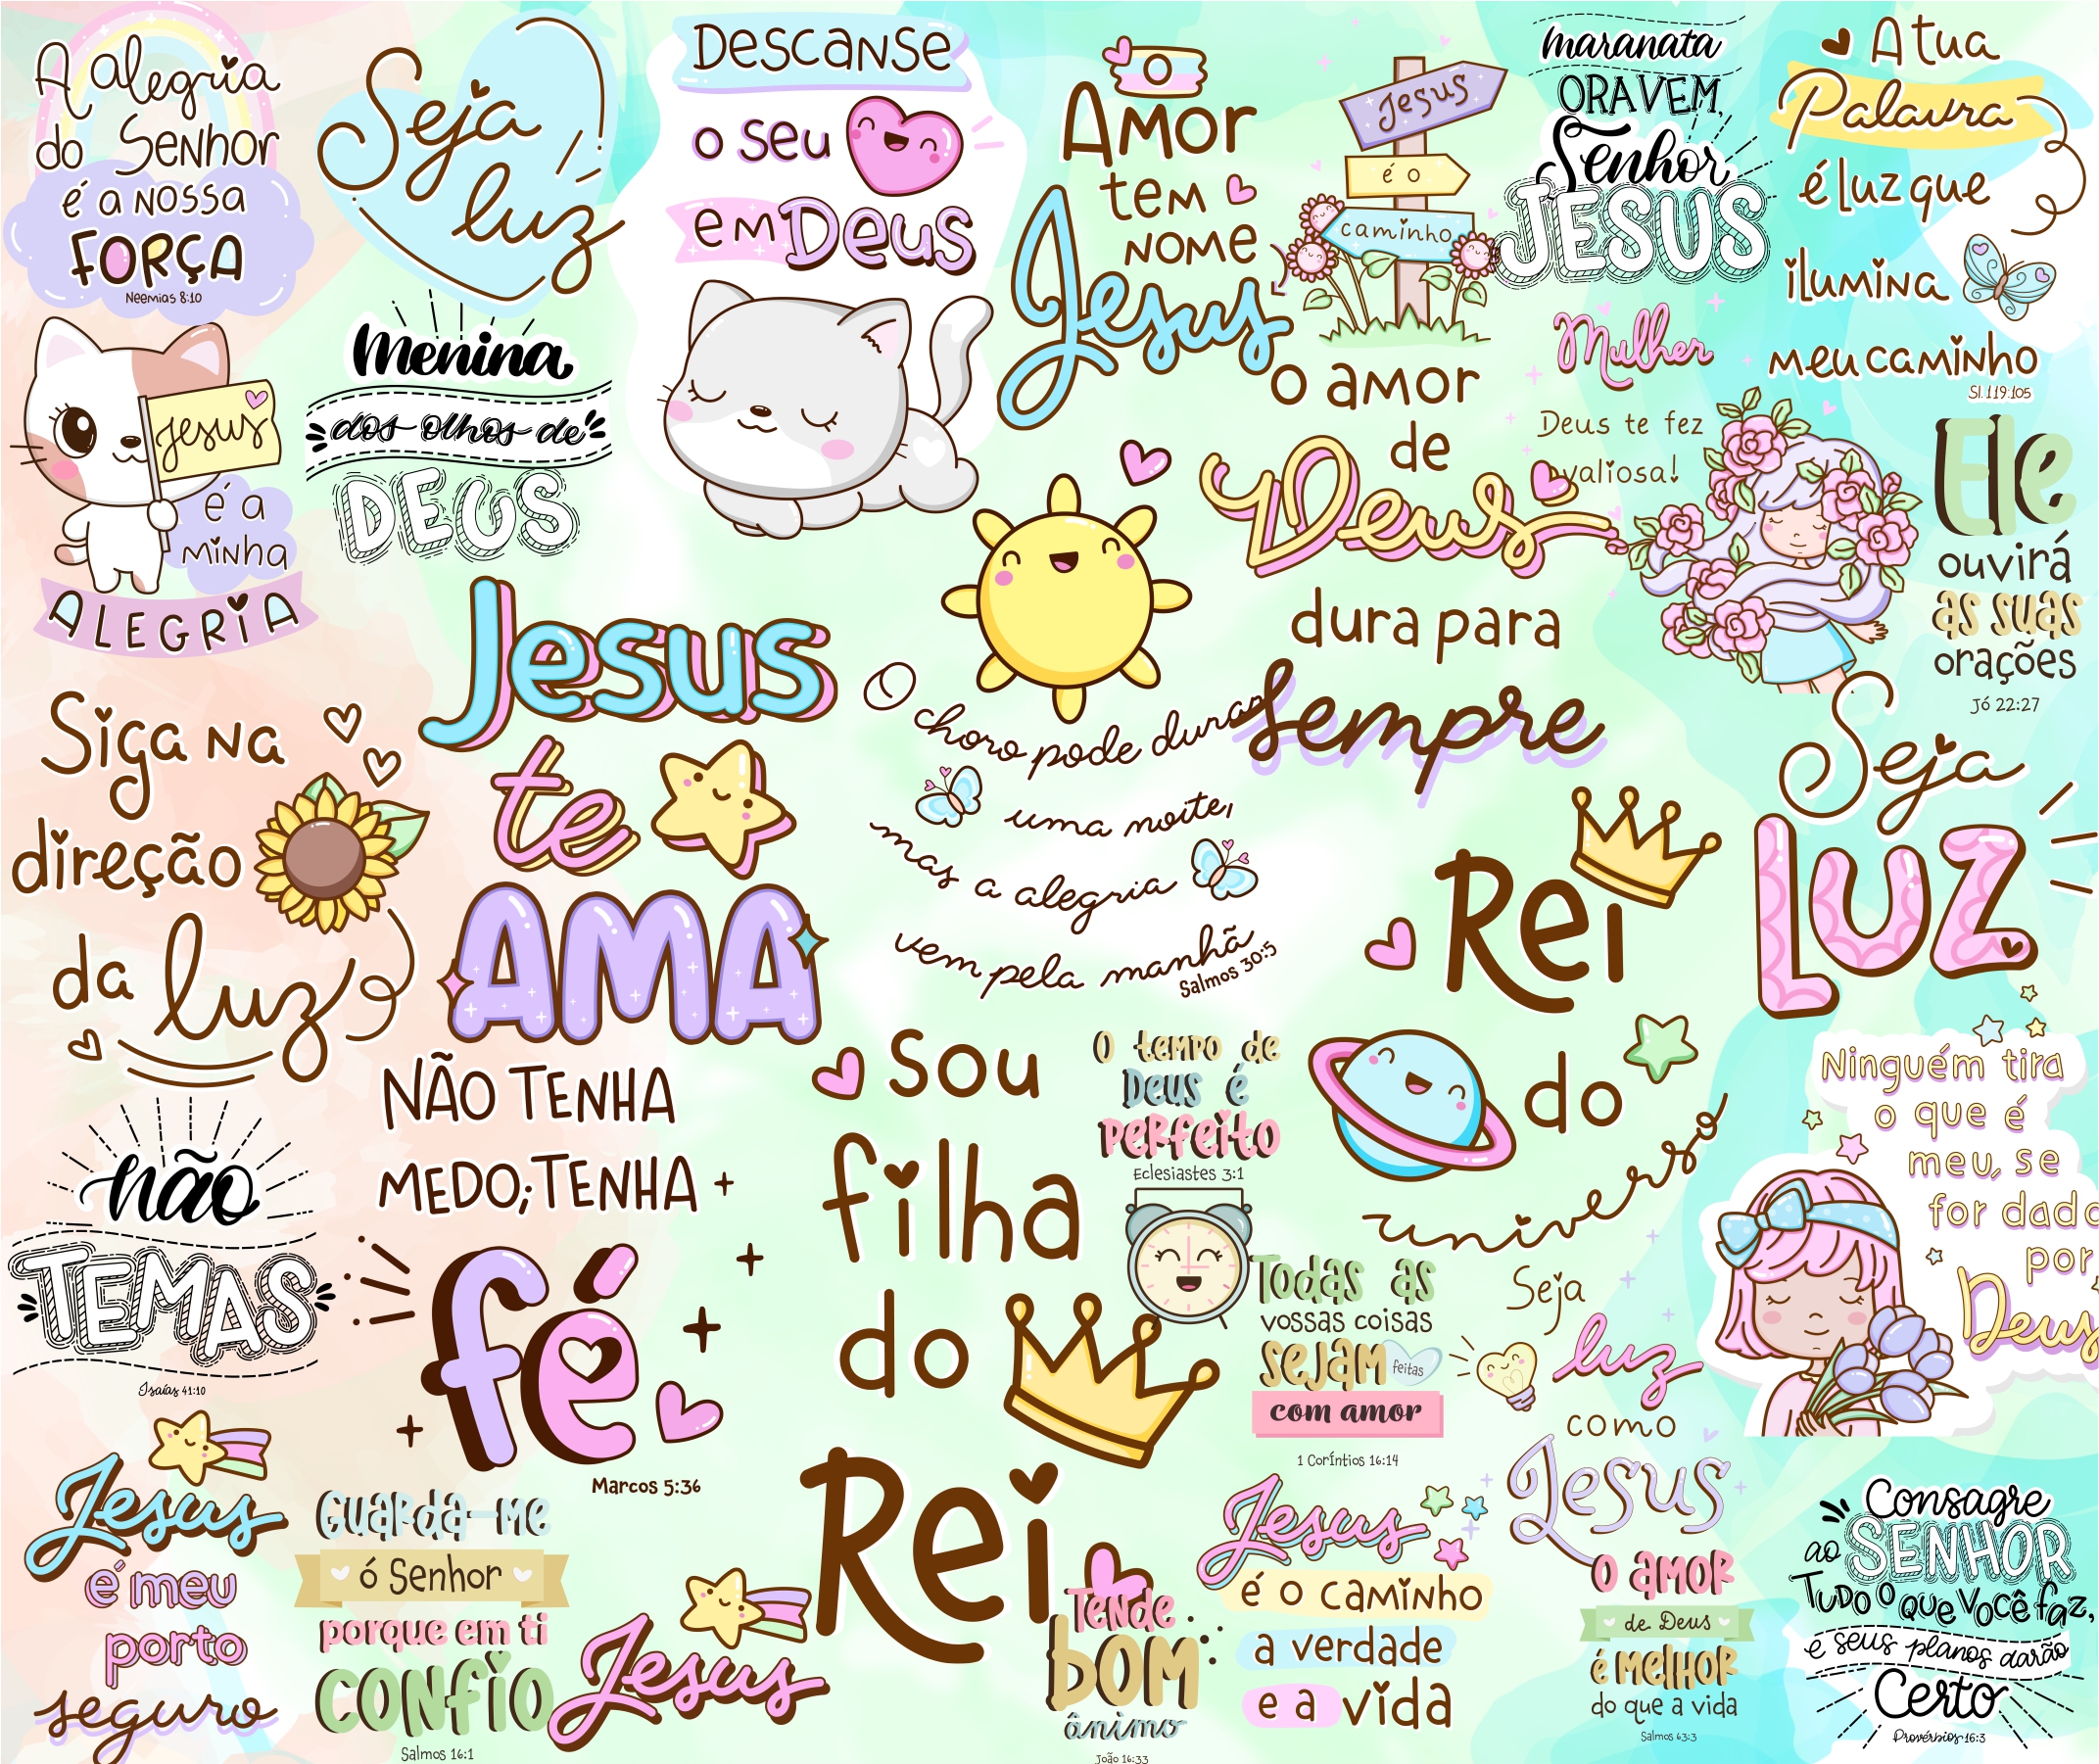 A alegria
do Senhor
é a nossa
FORÇA
Neemias 8:10
Seja
luz
Descanse
o seu
em Deus
Amor
tem
nome
Jesus
Jesus
é o
caminho
maranata
ORA VEM,
Senhor
JESUS
A tua
Palavra
é luz que
ilumina
meu caminho
Sl. 119:105
Jesus
é a
minha
ALEGRIA
Menina
dos olhos de
DEUS
o amor
de
Deus
dura para
sempre
Mulher
Deus te fez
valiosa!
Ele
ouvirá
as suas
orações
Jó 22:27
Siga na
direção
da luz
Jesus
te
AMA
O choro pode durar
uma noite,
mas a alegria
vem pela manhã
Salmos 30:5
Rei
do
universo
Seja
LUZ
não
TEMAS
Isaías 41:10
NÃO TENHA
MEDO; TENHA
fé
Marcos 5:36
sou
filha
do
Rei
O tempo de
Deus é
perfeito
Eclesiastes 3:1
Todas as
vossas coisas
sejam feitas
com amor
1 Coríntios 16:14
Seja
luz
como
Jesus
Ninguém tira
o que é
meu, se
for dado
por
Deus
Jesus
é meu
porto
seguro
Guarda-me
ó Senhor
porque em ti
confio
Salmos 16:1
Jesus
Tende
bom
ânimo
João 16:33
Jesus
é o caminho
a verdade
e a vida
O amor
de Deus
é melhor
do que a vida
Salmos 63:3
Consagre
ao SENHOR
Tudo o que você faz,
e seus planos darão
Certo
Provérbios 16:3